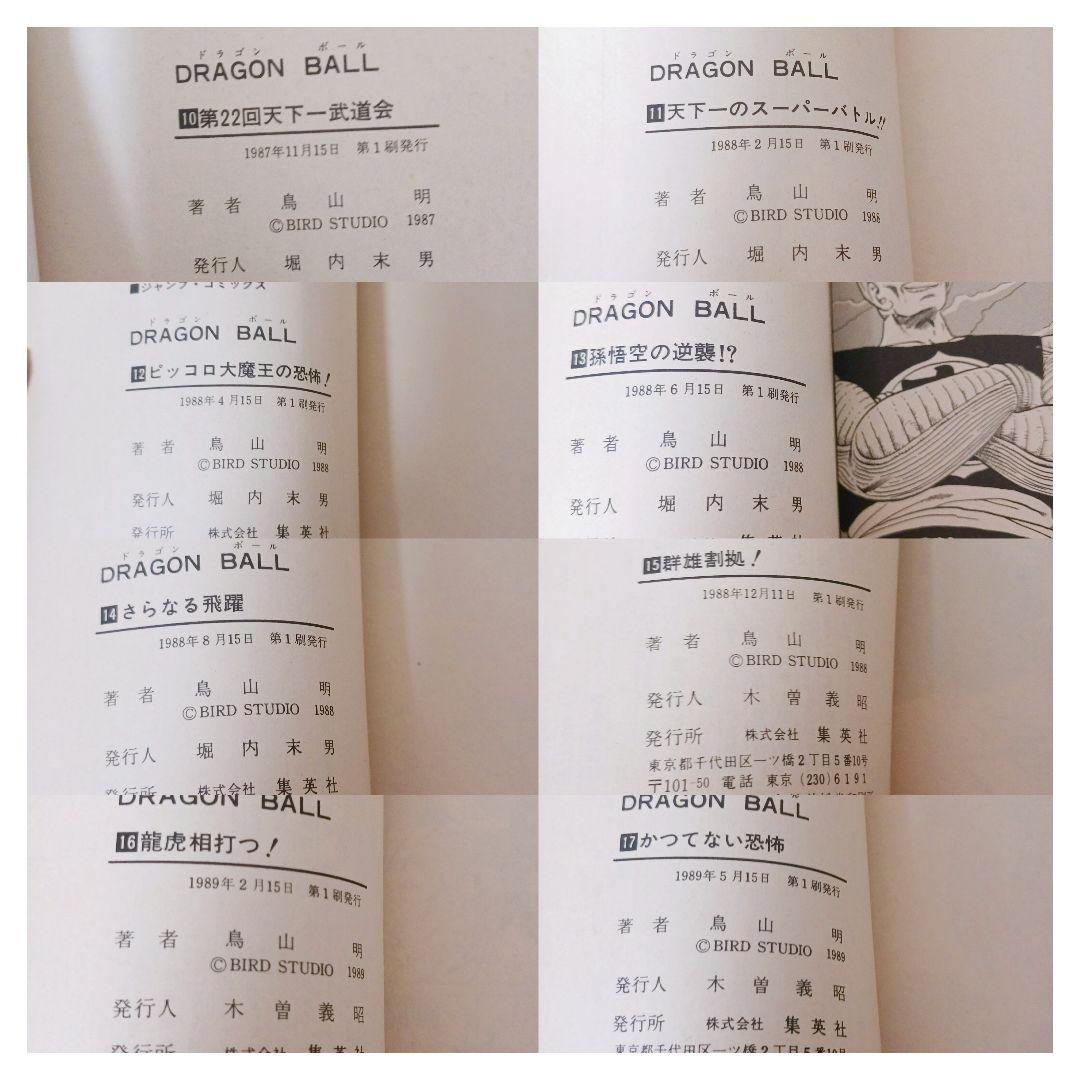 ドラゴン ボール
DRAGON BALL
10第22回天下一武道会
1987年11月15日 第1刷発行
著者 鳥山 明
©BIRD STUDIO 1987
発行人 堀内末男
ドラゴン ボール
DRAGON BALL
11天下一のスーパーバトル!!
1988年2月15日 第1刷発行
著者 鳥山 明
©BIRD STUDIO 1988
発行人 堀内末男
■ジャンプ・コミックス
ドラゴン ボール
DRAGON BALL
12ピッコロ大魔王の恐怖!
1988年4月15日 第1刷発行
著者 鳥山 明
©BIRD STUDIO 1988
発行人 堀内末男
発行所 株式会社 集英社
ドラゴン ボール
DRAGON BALL
13孫悟空の逆襲!?
1988年6月15日 第1刷発行
著者 鳥山 明
©BIRD STUDIO 1988
発行人 堀内末男
ドラゴン ボール
DRAGON BALL
14さらなる飛躍
1988年8月15日 第1刷発行
著者 鳥山 明
©BIRD STUDIO 1988
発行人 堀内末男
発行所 株式会社 集英社
15群雄割拠!
1988年12月11日 第1刷発行
著者 鳥山 明
©BIRD STUDIO 1988
発行人 木曽義昭
発行所 株式会社 集英社
東京都千代田区一ツ橋2丁目5番10号
〒101-50 電話 東京 (230) 6191
DRAGON BALL
16龍虎相打つ!
1989年2月15日 第1刷発行
著者 鳥山 明
©BIRD STUDIO 1989
発行人 木曽義昭
発行所 株式会社 集英社
DRAGON BALL
17かつてない恐怖
1989年5月15日 第1刷発行
著者 鳥山 明
©BIRD STUDIO 1989
発行人 木曽義昭
発行所 株式会社 集英社
東京都千代田区一ツ橋2丁目5番10号